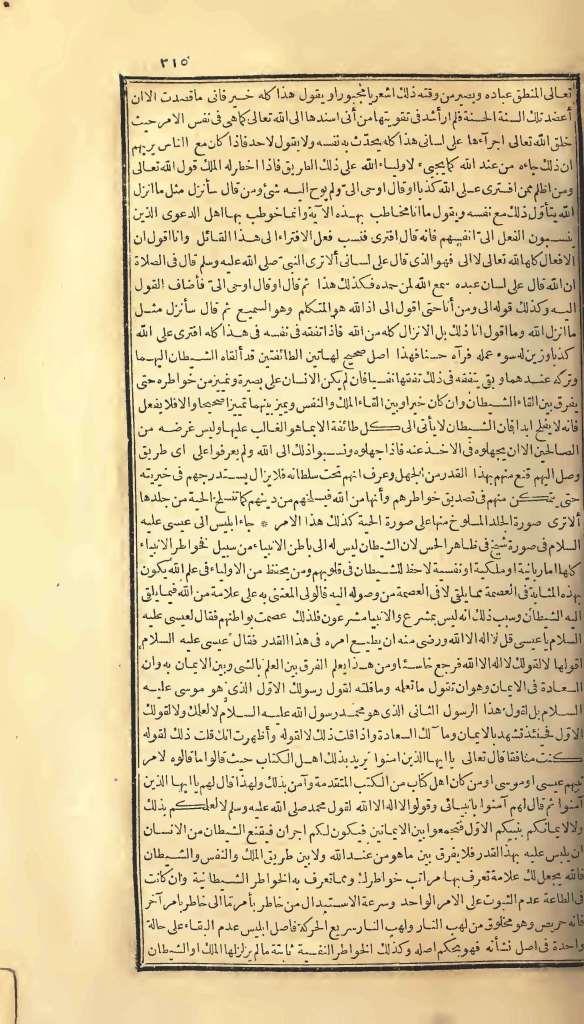 ٣١٥
تعالى المنطق عباده ويصير من وقته ذلك اشعريا مجبورا ويقول هذا كله خير فاني ما قصدت الا ان
أعضد تلك السنة الحسنة فلم أر أشد في تقويتها من أني اسندها الى الله تعالى كما هي في نفس الامر حيث
خلق الله تعالى اجراءها على لساني هذا كله يحدث به نفسه ولا يقول لاحد فاذا كان مع الناس يريهم
ان ذلك جاءه من عند الله كما يجيء لاولياء الله على ذلك الطريق فاذا اخطر له الملك قول الله تعالى
ومن اظلم ممن افترى على الله كذبا او قال اوحى الى ولم يوح اليه شئ ومن قال سأنزل مثل ما انزل
الله يتأول ذلك مع نفسه ويقول ما انا مخاطب بهذه الآية وانما خوطب بها اهل الدعوى الذين
ينسبون الفعل الى انفسهم فانه قال افترى فنسب فعل الافتراء الى هذا القائل وانا اقول ان
الافعال كلها لله تعالى لا الى فهو الذي قال على لساني ألا ترى النبي صلى الله عليه وسلم قال في الصلاة
ان الله قال على لسان عبده سمع الله لمن حمده فكذلك هذا ثم قال او قال اوحى الى فأضاف القول
اليه وكذلك قوله الى ومن أنا حتى اقول الى اذ الله هو المتكلم وهو السميع ثم قال سأنزل مثل
ما انزل الله وما اقول انا ذلك بل الانزال كله من الله فاذا تفقه في نفسه في هذا كله افترى على الله
كذبا وزين له سوء عمله فرآه حسنا فهذا اصل صحيح لهاتين الطائفتين قد ألقاه الشيطان اليهما
وتركه عندهما وبقي يتفقه في ذلك تفقها نفسيا فان لم يكن الانسان على بصيرة وتمييز من خواطره حتى
يفرق بين القاء الشيطان وان كان خيرا وبين القاء الملك والنفس ويميز بينهما تمييزا صحيحا والا فلا يفعل
فانه لا يفلح ابدا فان الشيطان لا يأتي الى كل طائفة الا بما هو الغالب عليها وليس غرضه من
الصالحين الا ان يجهلوه في الاخذ عنه فاذا جهلوه ونسبوا ذلك الى الله ولم يعرفوا على اى طريق
وصل اليهم قنع منهم بهذا القدر من الجهل وعرف انهم تحت سلطانه فلا يزال يستدرجهم في خيريته
حتى يتمكن منهم في تصديق خواطرهم وأنها من الله فيسلخهم من دينهم كما تنسلخ الحية من جلدها
ألا ترى صورة الجلد المسلوخ منها على صورة الحية كذلك هذا الامر * جاء ابليس الى عيسى عليه
السلام في صورة شيخ في ظاهر الحس لان الشيطان ليس له الى باطن الانبياء من سبيل فخواطر الانبياء
كلها اما ربانية او ملكية او نفسية لا حظ للشيطان في قلوبهم ومن يحفظ من الاولياء في علم الله يكون
بهذه المثابة في العصمة مما يلقى لا في العصمة من وصوله اليه فالولى المعتنى به على علامة من الله فيما يلقى
اليه الشيطان وسبب ذلك انه ليس بمشرع والانبياء مشرعون فلذلك عصمت بواطنهم فقال لعيسى عليه
السلام يا عيسى قل لا اله الا الله ورضى منه ان يطيع امره في هذا القدر فقال عيسى عليه السلام
اقولها لا لقولك لا اله الا الله فرجع خاسئا ومن هذا يعلم الفرق بين العلم بالشئ وبين الايمان به وان
السعادة في الايمان وهو ان تقول ما تعلمه وما قلته لقول رسولك الاول الذي هو موسى عليه
السلام بل لقول هذا الرسول الثاني الذي هو محمد رسول الله عليه السلام لا لعلمك ولا لقولك
الاول فحينئذ تشهد بالايمان ومآلك السعادة واذا قلت ذلك لا لقوله وأظهرت انك قلت ذلك لقوله
كنت منافقا قال تعالى يا ايها الذين امنوا يريد بذلك اهل الكتاب حيث قالوا ما قالوه لامر
نبيهم عيسى او موسى او من كان اهل كتاب من الكتب المتقدمة وآمن بذلك ولهذا قال لهم يا ايها الذين
آمنوا ثم قال لهم آمنوا بانبيائى وقولوا لا اله الا الله لقول محمد صلى الله عليه وسلم لا لعلمكم بذلك
ولا لايمانكم بنبيكم الاول فتجمعوا بين الايمانين فيكون لكم اجران فيقنع الشيطان من الانسان
ان يلبس عليه بهذا القدر فلا يفرق بين ما هو من عند الله ولا بين طريق الملك والنفس والشيطان
فالله يجعل لك علامة تعرف بها مراتب خواطرك ومما تعرف به الخواطر الشيطانية وان كانت
في الطاعة عدم الثبوت على الامر الواحد وسرعة الاستبدال من خاطر بأمر ما الى خاطر بامر آخر
فانه حريص وهو مخلوق من لهب النار ولهب النار سريع الحركة فاصل ابليس عدم البقاء على حالة
واحدة في اصل نشأته فهو بحكم اصله وكذلك الخواطر النفسية ثابتة ما لم يزلزلها الملك او الشيطان